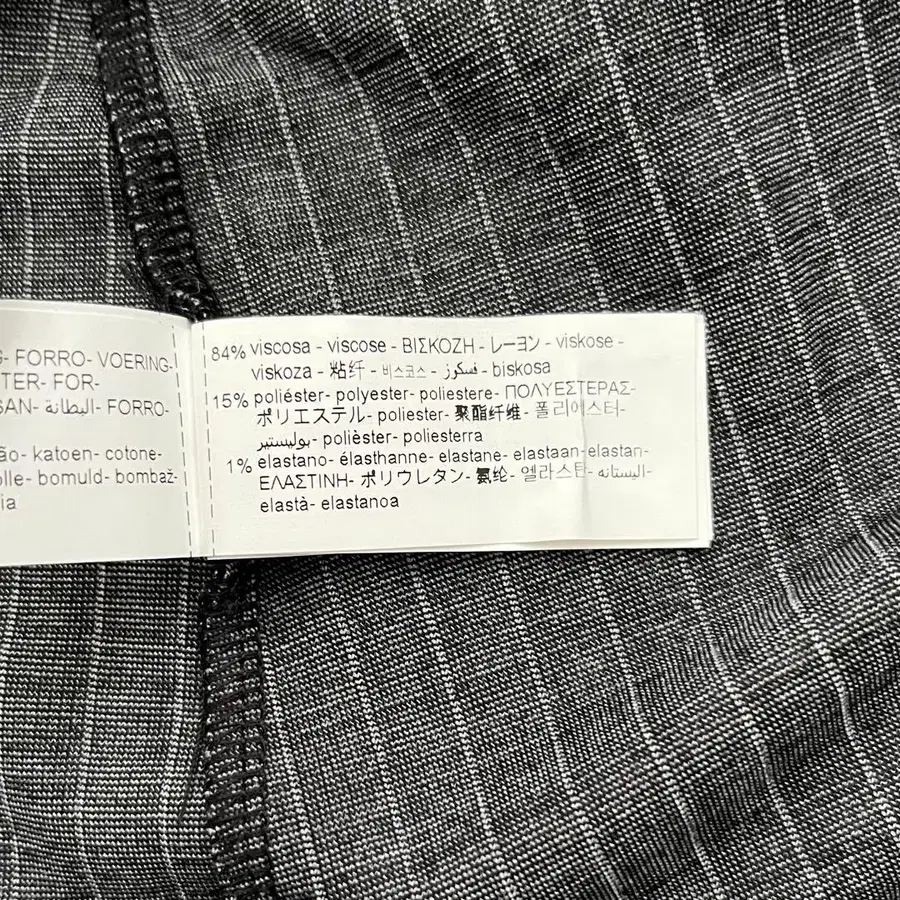 FORRO- VOERING-
TER- FOR-
SAN- البطانة- FORRO-
ão- katoen- cotone-
olle- bomuld- bombaž-
ia
84% viscosa - viscose - ΒΙΣΚΟΖΗ - レーヨン - viskose -
viskoza - 粘纤 - 비스코스 - فسكوز - biskosa
15% poliéster- polyester- poliestere- ΠΟΛΥΕΣΤΕΡΑΣ-
ポリエステル- poliester- 聚酯纤维- 폴리에스터-
بوليستير- polièster- poliesterra
1% elastano- élasthanne- elastane- elastaan- elastan-
ΕΛΑΣΤΙΝΗ- ポリウレタン- 氨纶- 엘라스탄- اليستانه-
elastà- elastanoa